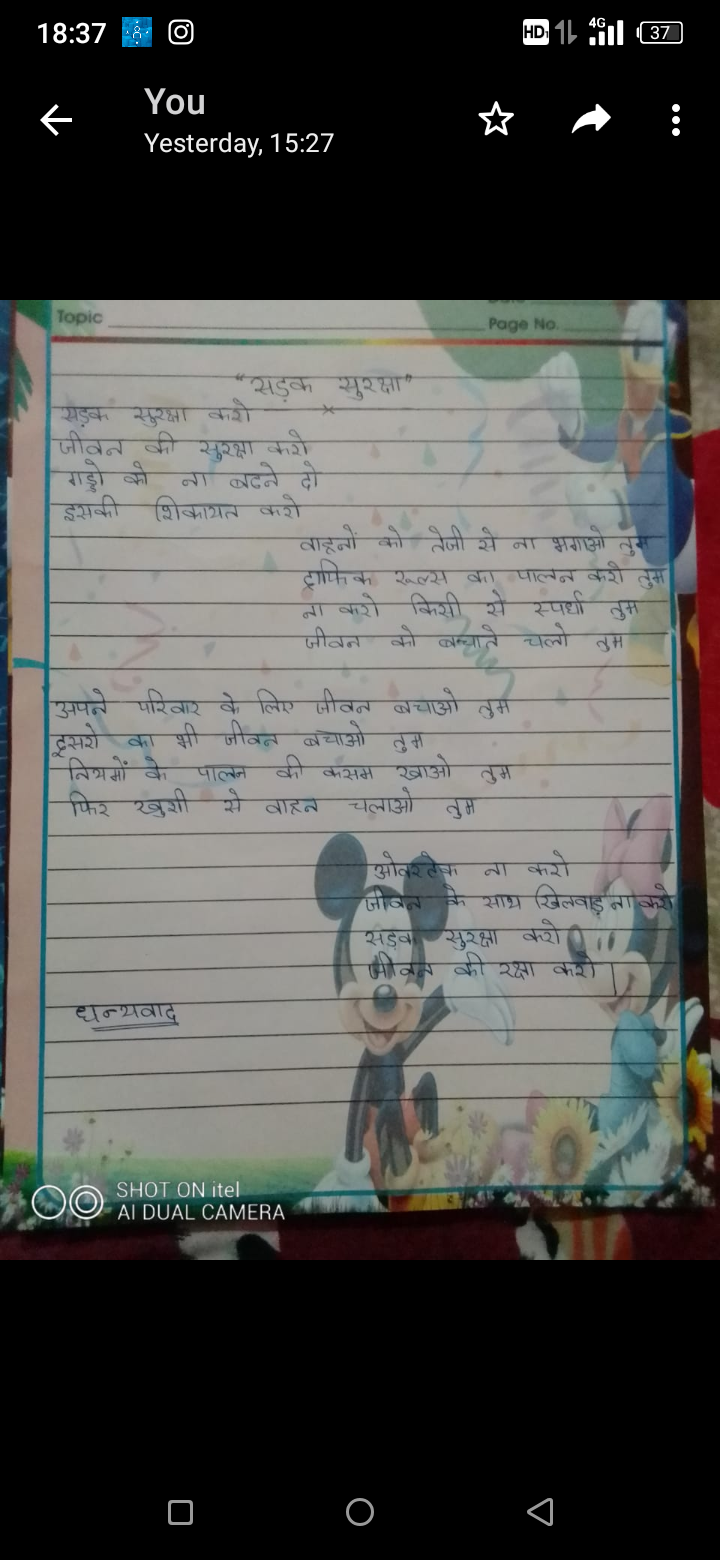 18:37
HD 4G 37
You
Yesterday, 15:27
Topic
Page No.
"सड़क सुरक्षा"
सड़क सुरक्षा करो
जीवन की सुरक्षा करो
गड्डो को ना बढने दो
इसकी शिकायत करो
वाहनों को तेजी से ना भगाओ तुम
ट्राफिक रूल्स का पालन करो तुम
ना करो किसी से स्पर्धा तुम
जीवन को बचाते चलो तुम
अपने परिवार के लिए जीवन बचाओ तुम
दूसरो का भी जीवन बचाओ तुम
नियमों के पालन की कसम खाओ तुम
फिर खुशी से वाहन चलाओ तुम
ओवरटेक ना करो
जीवन के साथ खिलवाड़ ना करो
सड़क सुरक्षा करो
जीवन की रक्षा करो |
धन्यवाद
SHOT ON itel
AI DUAL CAMERA